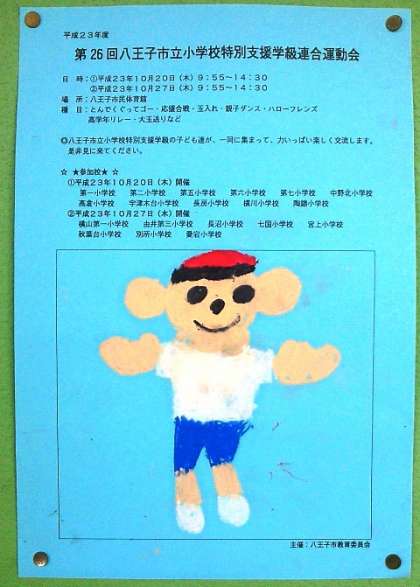 平成２３年度
第２６回八王子市立小学校特別支援学級連合運動会
日　時：①平成２３年１０月２０日（木）９：５５～１４：３０
②平成２３年１０月２７日（木）９：５５～１４：３０
場　所：八王子市民体育館
種　目：とんでくぐってゴー・応援合戦・玉入れ・親子ダンス・ハローフレンズ
高学年リレー・大玉送りなど
◎八王子市立小学校特別支援学級の子ども達が、一同に集まって、力いっぱい楽しく交流します。
是非見に来てください。
☆ ★参加校★ ☆
①平成２３年１０月２０日（木）開催
第一小学校　第二小学校　第五小学校　第六小学校　第七小学校　中野北小学校
高倉小学校　宇津木台小学校　長房小学校　横川小学校　陶鎔小学校
②平成２３年１０月２７日（木）開催
横山第一小学校　由井第三小学校　長沼小学校　七国小学校　宮上小学校
秋葉台小学校　別所小学校　愛宕小学校
主催：八王子市教育委員会